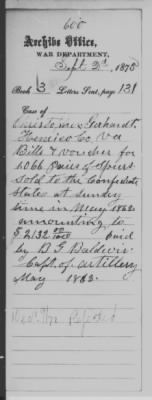 600
Archive Office,
WAR DEPARTMENT,
Sept 2d, 1875
Book 3 Letters Sent, page 131
Case of
Gerhardt,
Henrico Co, Va
Bills & voucher for
1066 Pairs of Spurs
sold to the Confederate
States at sundry
time in May 1862
amounting to
$2132 paid
by B. G. Baldwin
Capt. of Artillery
May 1863.